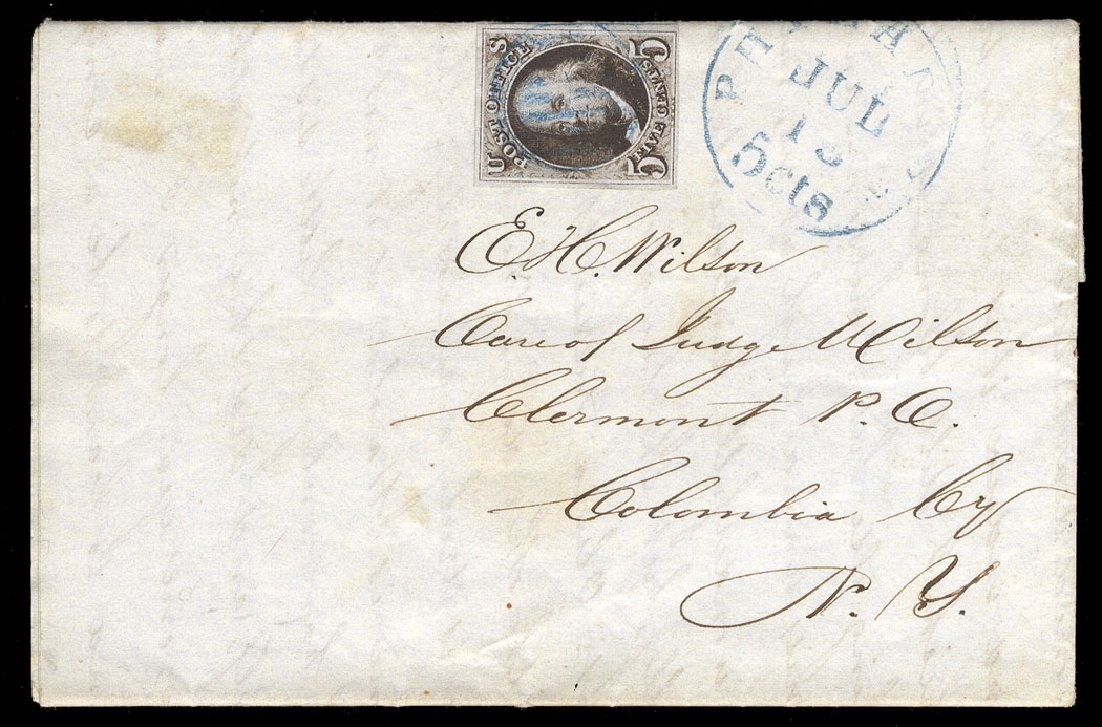 U S
POST OFFICE
FIVE CENTS
5 5
JUL
13
5cts
E. H. Wilson
Care of Judge Wilson
Clermont P. O.
Colombia Cy
N. Y.